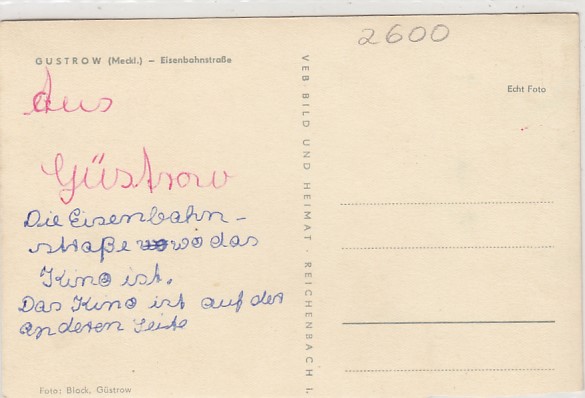 2600
GUSTROW (Meckl.) – Eisenbahnstraße
Echt Foto
Aus
Güstrow
Die Eisenbahn-
straße wo das
Kino ist.
Das Kino ist auf der
anderen Seite
VEB BILD UND HEIMAT · REICHENBACH I.
Foto: Block, Güstrow